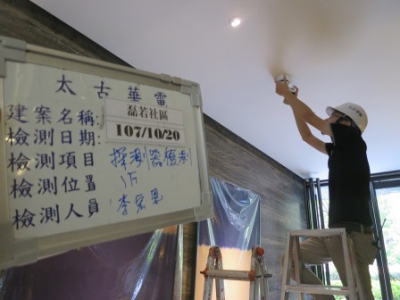 太古華電
建案名稱: 磊若社區
檢測日期: 107/10/20
檢測項目 探測器檢測
檢測位置 1F
檢測人員